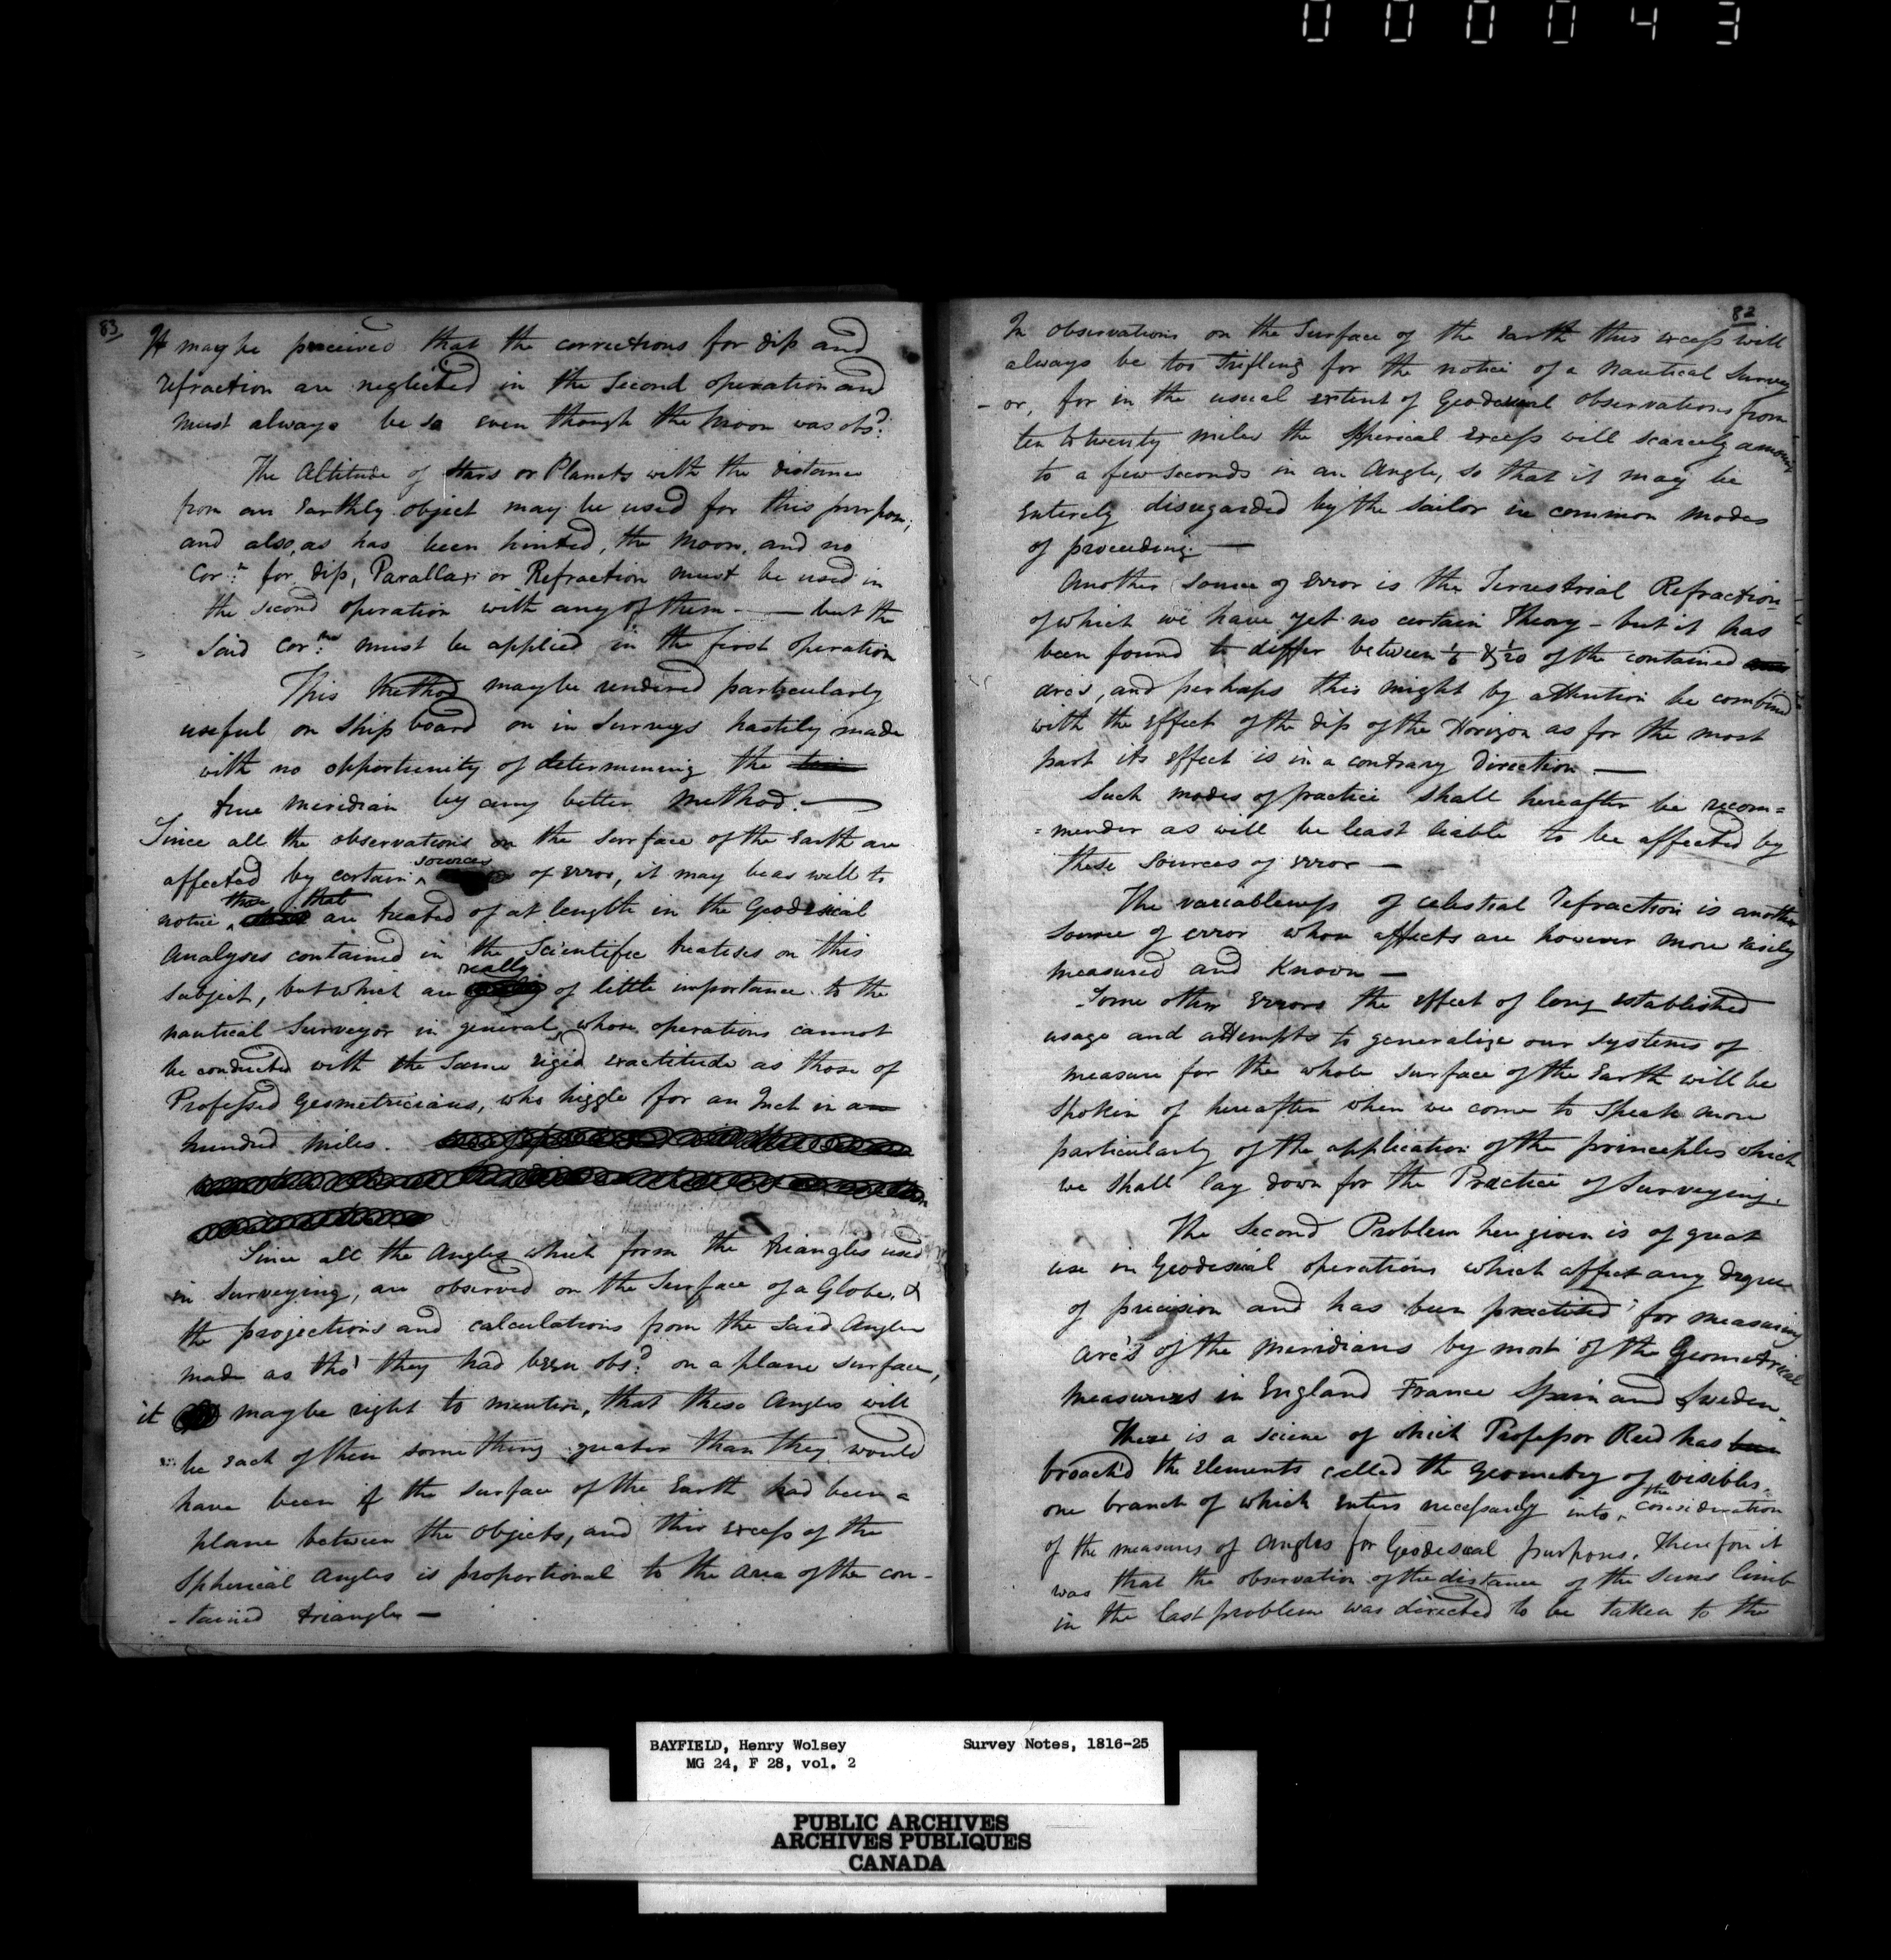 000043
83
It may be perceived that the corrections for dip and
refraction are neglected in the second operation and
must always be so even though the Moon was obs.d
The Altitude of Stars or Planets with the distance
from an Earthly object may be used for this purpose;
and also, as has been hinted, the Moon, and no
Cor.n for dip, Parallax or Refraction must be used in
the second operation with any of them — but the
said Cor.ns must be applied in the first operation
This Method may be rendered particularly
useful on Ship board on in Surveys hastily made
with no opportunity of determining the
true meridian by any better method. —
Since all the observations on the Surface of the Earth are
affected by certain sources of error, it may be as well to
notice, those that are treated of at length in the Geodesical
Analyses contained in the Scientific treatises on this
subject, but which are really of little importance to the
nautical Surveyor in general, whose operations cannot
be conducted with the same rigid exactitude as those of
Professed Geometricians, who higgle for an Inch in a
hundred miles.
Since all the Angles which form the triangles used
in Surveying, are observed on the Surface of a Globe, &
the projections and calculations from the said Angles
made as tho' they had been obs.d on a plane surface,
it may be right to mention, that these Angles will
be each of them something greater than they would
have been if the surface of the Earth had been a
plane between the Objects, and this excess of the
Spherical Angles is proportional to the Area of the con-
-tained triangle —
82
In observations on the Surface of the Earth this excess will
always be too Trifling for the notice of a Nautical Survey
-or, for in the usual extent of Geodesical observations from
ten to twenty miles the Spherical Excess will scarcely amount
to a few seconds in an Angle, so that it may be
Entirely disregarded by the sailor in common modes
of proceeding. —
Another source of Error is the Terrestrial Refraction
of which we have yet no certain Theory - but it has
been found to differ between & 1/20 of the contained
arcs, and perhaps this might by attention be combined
with the Effect of the dip of the Horizon as for the most
part its effect is in a contrary direction —
Such modes of practice shall hereafter be recom=
=mender as will be least liable to be affected by
these sources of error —
The variableness of celestial Refraction is another
source of error whose affects are however more easily
measured and Known —
Some other Errors the effect of long established
usage and attempts to generalize our systems of
measure for the whole surface of the Earth will be
spoken of hereafter when we come to speak more
particularly of the application of the principles which
we shall lay down for the Practice of Surveying.
The Second Problem here given is of great
use in Geodesical operations which affect any degree
of precision and has been practised for measuring
Arc's of the Meridians by most of the Geometrical
measurers in England France Spain and Sweden.
There is a science of which Professor Reed has
broach'd the Elements called the Geometry of visibles,
one branch of which enters necessarily into the consideration
of the measures of Angles for Geodesical purposes. Therefore it
was that the observation of the distance of the Suns limb
in the last problem was directed to be taken to the
BAYFIELD, Henry Wolsey Survey Notes, 1816-25
MG 24, F 28, vol. 2
PUBLIC ARCHIVES
ARCHIVES PUBLIQUES
CANADA